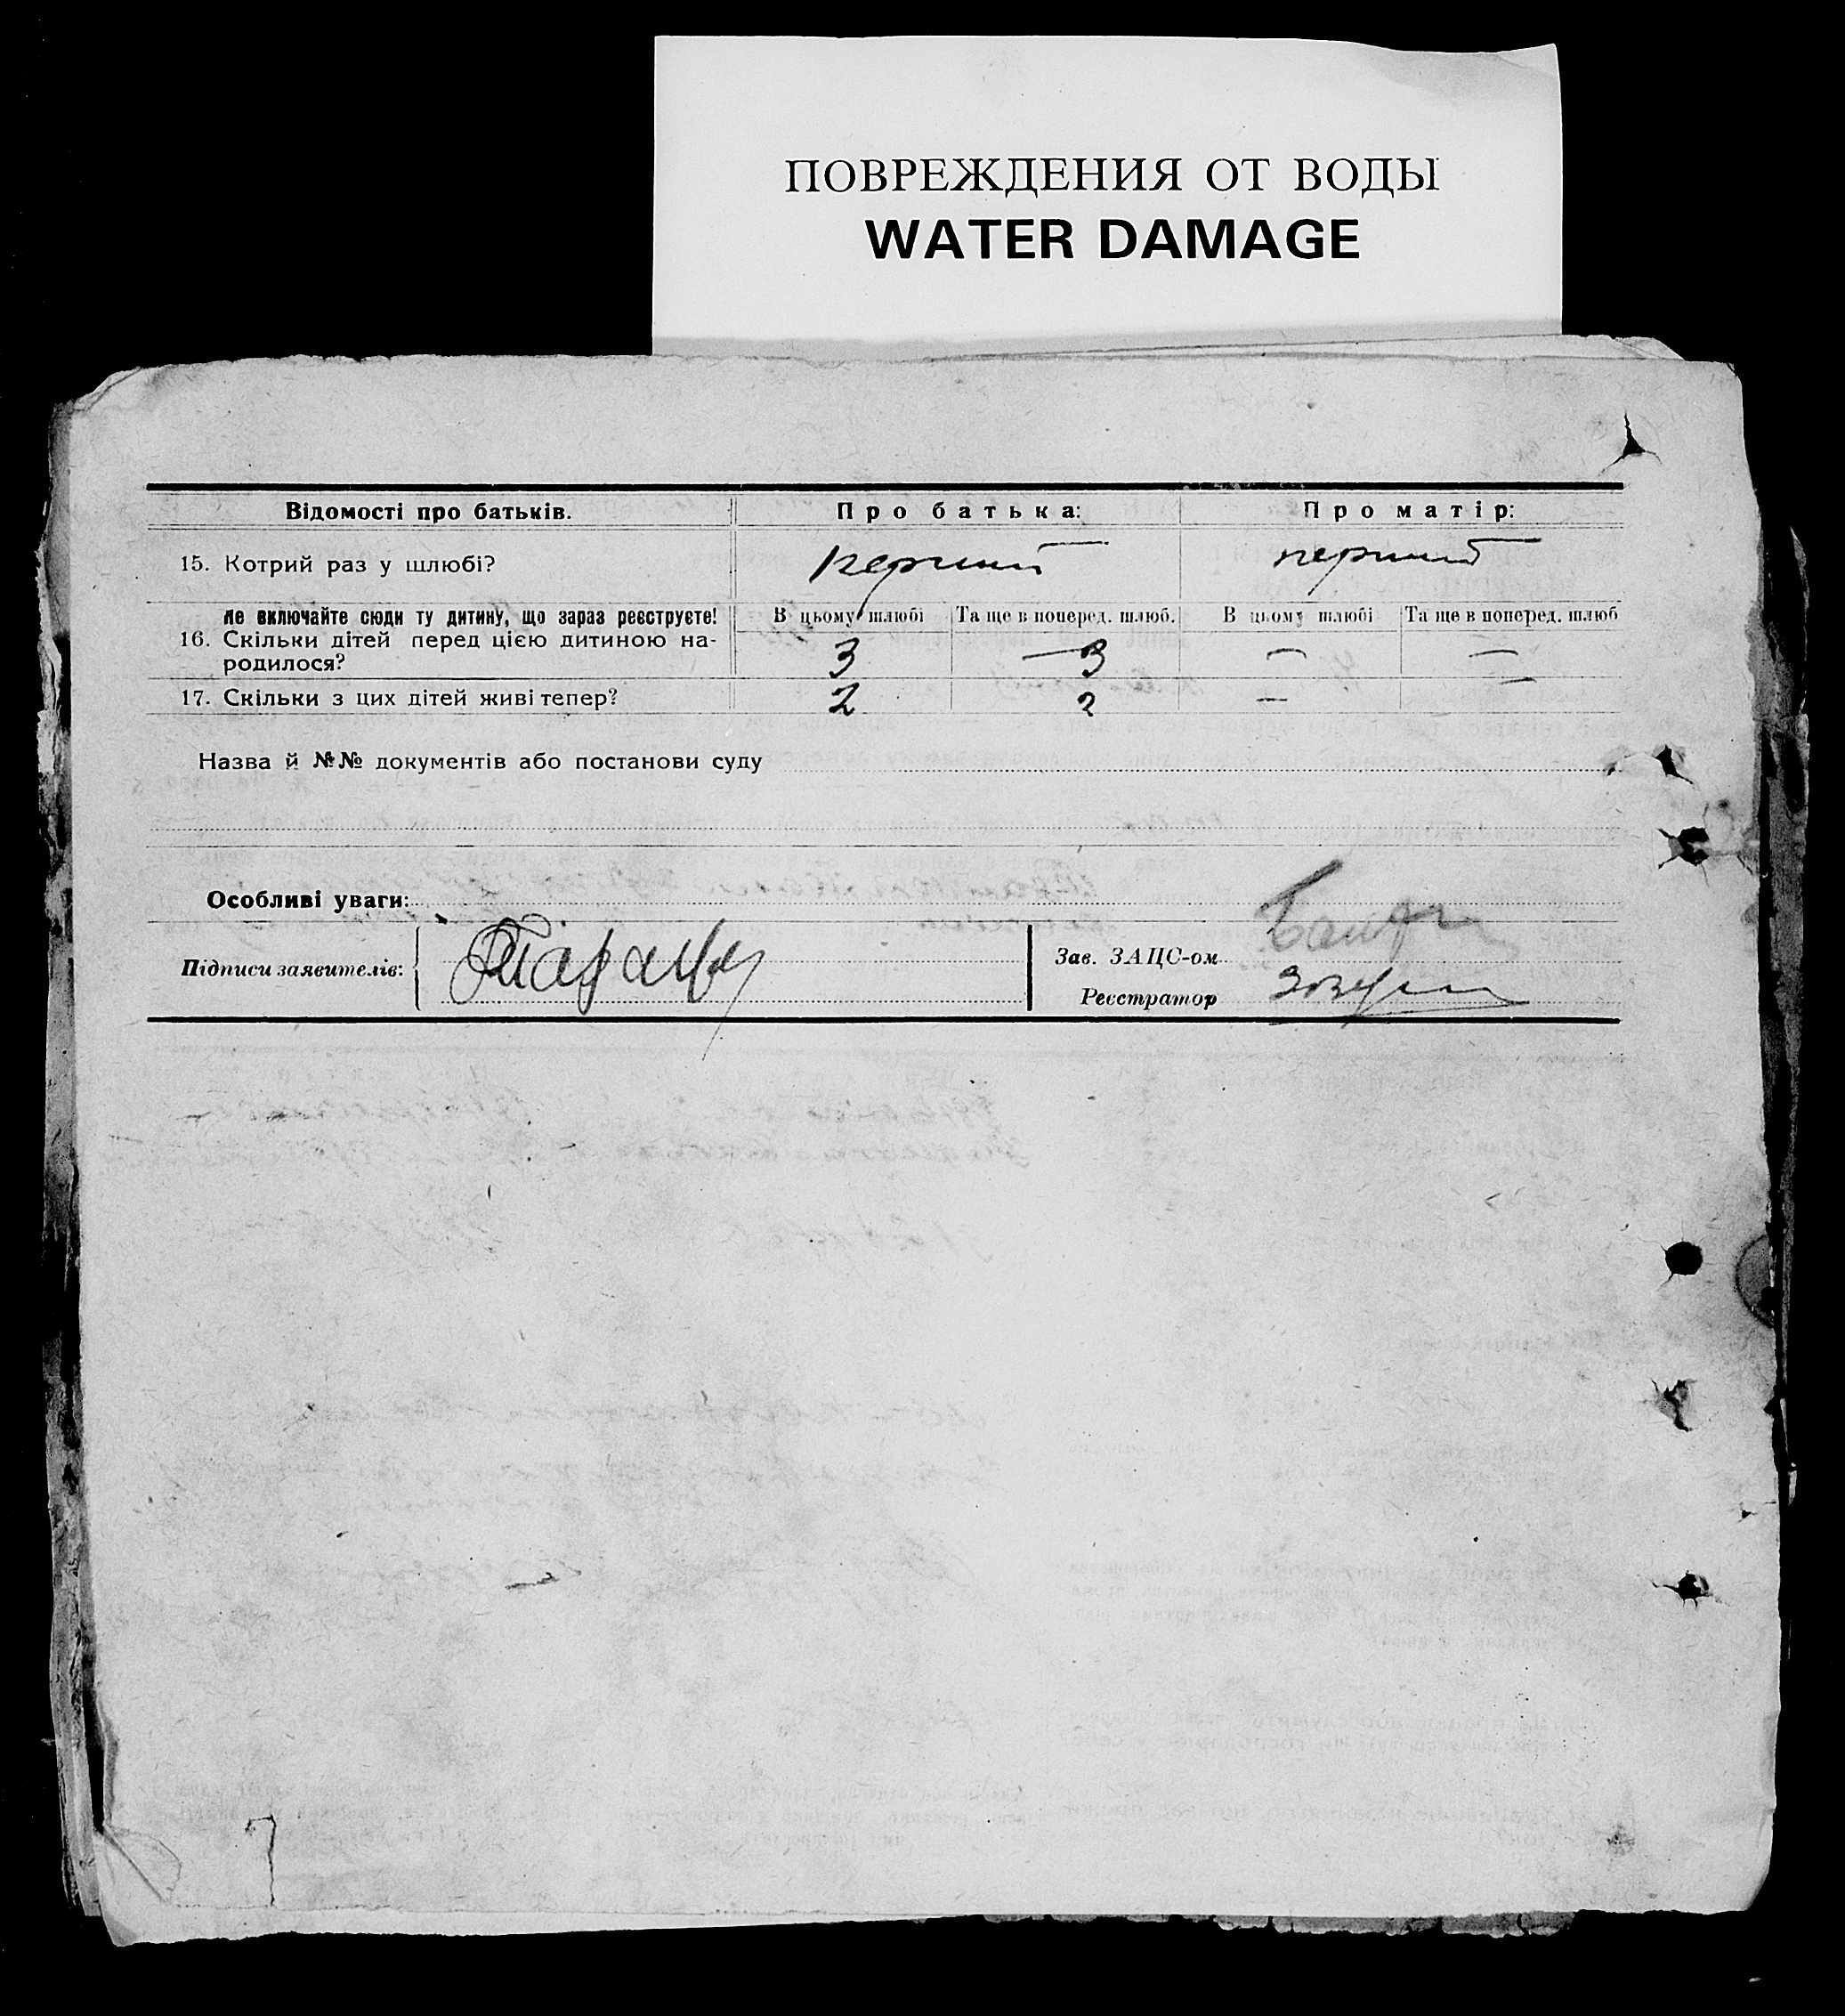 ПОВРЕЖДЕНИЯ ОТ ВОДЫ
WATER DAMAGE
Відомості про батьків. Про батька: Про матір:
15. Котрий раз у шлюбі? первий первий
Не включайте сюди ту дитину, що зараз реєструєте! В цьому шлюбі Та ще в поперед. шлюб. В цьому шлюбі Та ще в поперед. шлюб
16. Скільки дітей перед цією дитиною на-
родилося? 3 — 3 — —
17. Скільки з цих дітей живі тепер? 2 2 — —
Назва й №№ документів або постанови суду
Особливі уваги:
Підписи заявителів:
Зав. ЗАЦС-ом
Реєстратор